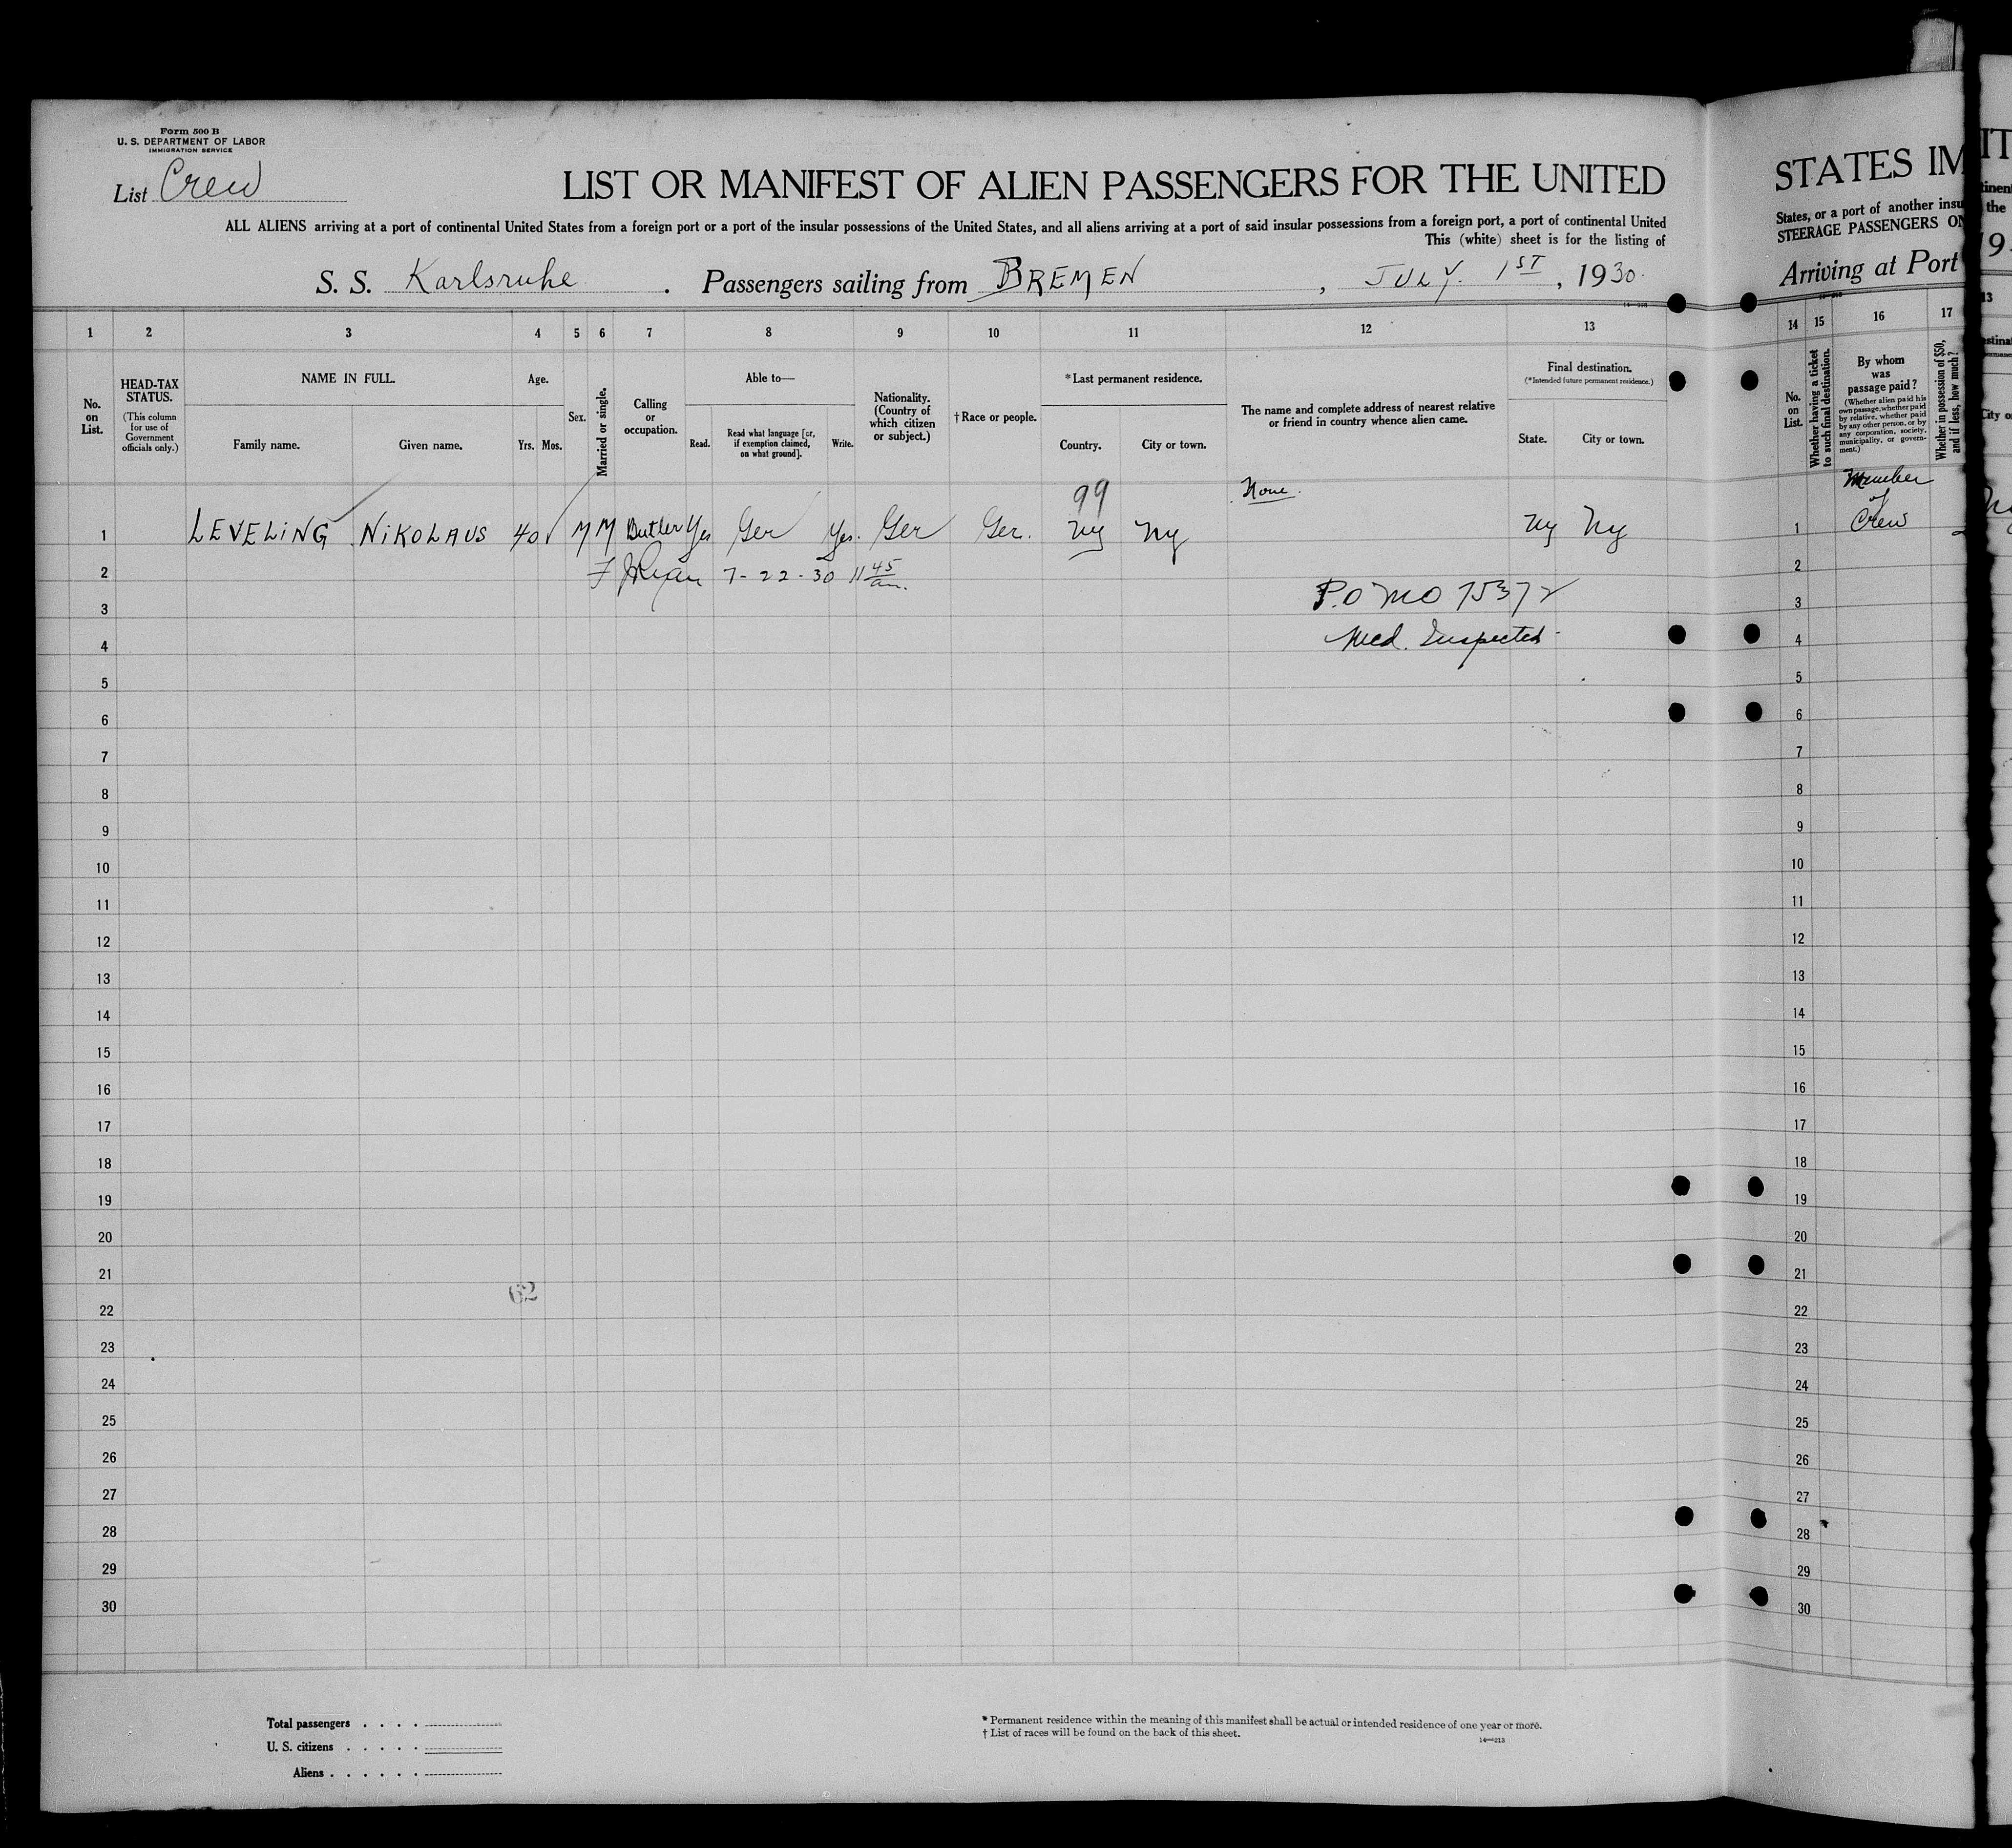 Form 500 B
U. S. DEPARTMENT OF LABOR
IMMIGRATION SERVICE
List Crew
LIST OR MANIFEST OF ALIEN PASSENGERS FOR THE UNITED
ALL ALIENS arriving at a port of continental United States from a foreign port or a port of the insular possessions of the United States, and all aliens arriving at a port of said insular possessions from a foreign port, a port of continental United
This (white) sheet is for the listing of
S. S. Karlsruhe . Passengers sailing from BREMEN , JULY. 1ST , 1930.
1 2 3 4 5 6 7 8 9 10 11 12 13
No. on List.
HEAD-TAX STATUS.
(This column for use of Government officials only.)
NAME IN FULL.
Family name. Given name.
Age.
Yrs. Mos.
Sex.
Married or single.
Calling or occupation.
Able to—
Read. Read what language [or, if exemption claimed, on what ground]. Write.
Nationality. (Country of which citizen or subject.)
†Race or people.
*Last permanent residence.
Country. City or town.
The name and complete address of nearest relative or friend in country whence alien came.
Final destination.
(*Intended future permanent residence.)
State. City or town.
99 None.
1 LEVELING NIKOLAUS 40 M M Butler Yes Ger Yes. Ger Ger. Ny Ny Ny Ny
2 7-22-30 11 45 am.
3 P.O MO 75372
4 Med. Inspected
5
6
7
8
9
10
11
12
13
14
15
16
17
18
19
20
21
62
22
23
24
25
26
27
28
29
30
Total passengers . . . .
U. S. citizens . . . . .
Aliens . . . . . .
* Permanent residence within the meaning of this manifest shall be actual or intended residence of one year or more.
† List of races will be found on the back of this sheet.
14—213
STATES IM
States, or a port of another insu
STEERAGE PASSENGERS ON
Arriving at Port
14 15 16 17
No. on List.
Whether having a ticket to such final destination.
By whom was passage paid?
(Whether alien paid his own passage, whether paid by relative, whether paid by any other person, or by any corporation, society, municipality, or government.)
Whether in possession of $50, and if less, how much?
Member
of
1 Crew
2
3
4
5
6
7
8
9
10
11
12
13
14
15
16
17
18
19
20
21
22
23
24
25
26
27
28
29
30